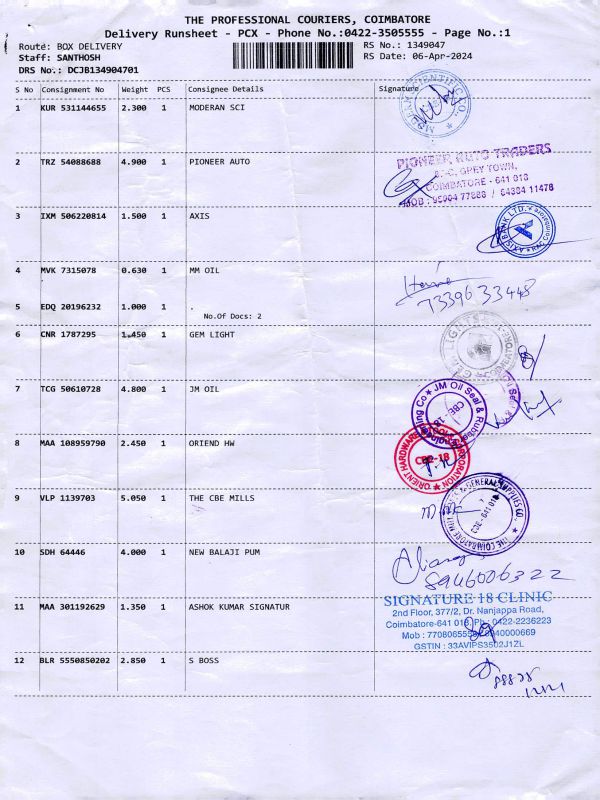 THE PROFESSIONAL COURIERS, COIMBATORE
Delivery Runsheet - PCX - Phone No.:0422-3505555 - Page No.:1
Route: BOX DELIVERY RS No.: 1349047
Staff: SANTHOSH RS Date: 06-Apr-2024
DRS No.: DCJB134904701
S No Consignment No Weight PCS Consignee Details Signature
1 KUR 531144655 2.300 1 MODERAN SCI
2 TRZ 54088688 4.900 1 PIONEER AUTO
PIONEER AUTO TRADERS
GREY TOWN,
COIMBATORE - 641 018
MOB : 95004 77888 / 64384 11478
3 IXM 506220814 1.500 1 AXIS
AXIS BANK LTD.
4 MVK 7315078 0.630 1 MM OIL
7339633448
5 EDQ 20196232 1.000 1 .
No.Of Docs: 2
6 CNR 1787295 1.450 1 GEM LIGHT
7 TCG 50610728 4.800 1 JM OIL
JM Oil Seal & Rubber
CBE - 18
8 MAA 108959790 2.450 1 ORIEND HW
ORIENT HARDWARE CORPORATION
CBE-18
9 VLP 1139703 5.050 1 THE CBE MILLS
THE COIMBATORE MILL & GENERAL SUPPLIES CO.
CBE-641 018
10 SDH 64446 4.000 1 NEW BALAJI PUM
8946006322
11 MAA 301192629 1.350 1 ASHOK KUMAR SIGNATUR
SIGNATURE 18 CLINIC
2nd Floor, 377/2, Dr. Nanjappa Road,
Coimbatore-641 018, Ph : 0422-2236223
Mob : 7708065558
GSTIN : 33AVIPS3502J1ZL
12 BLR 5550850202 2.850 1 S BOSS